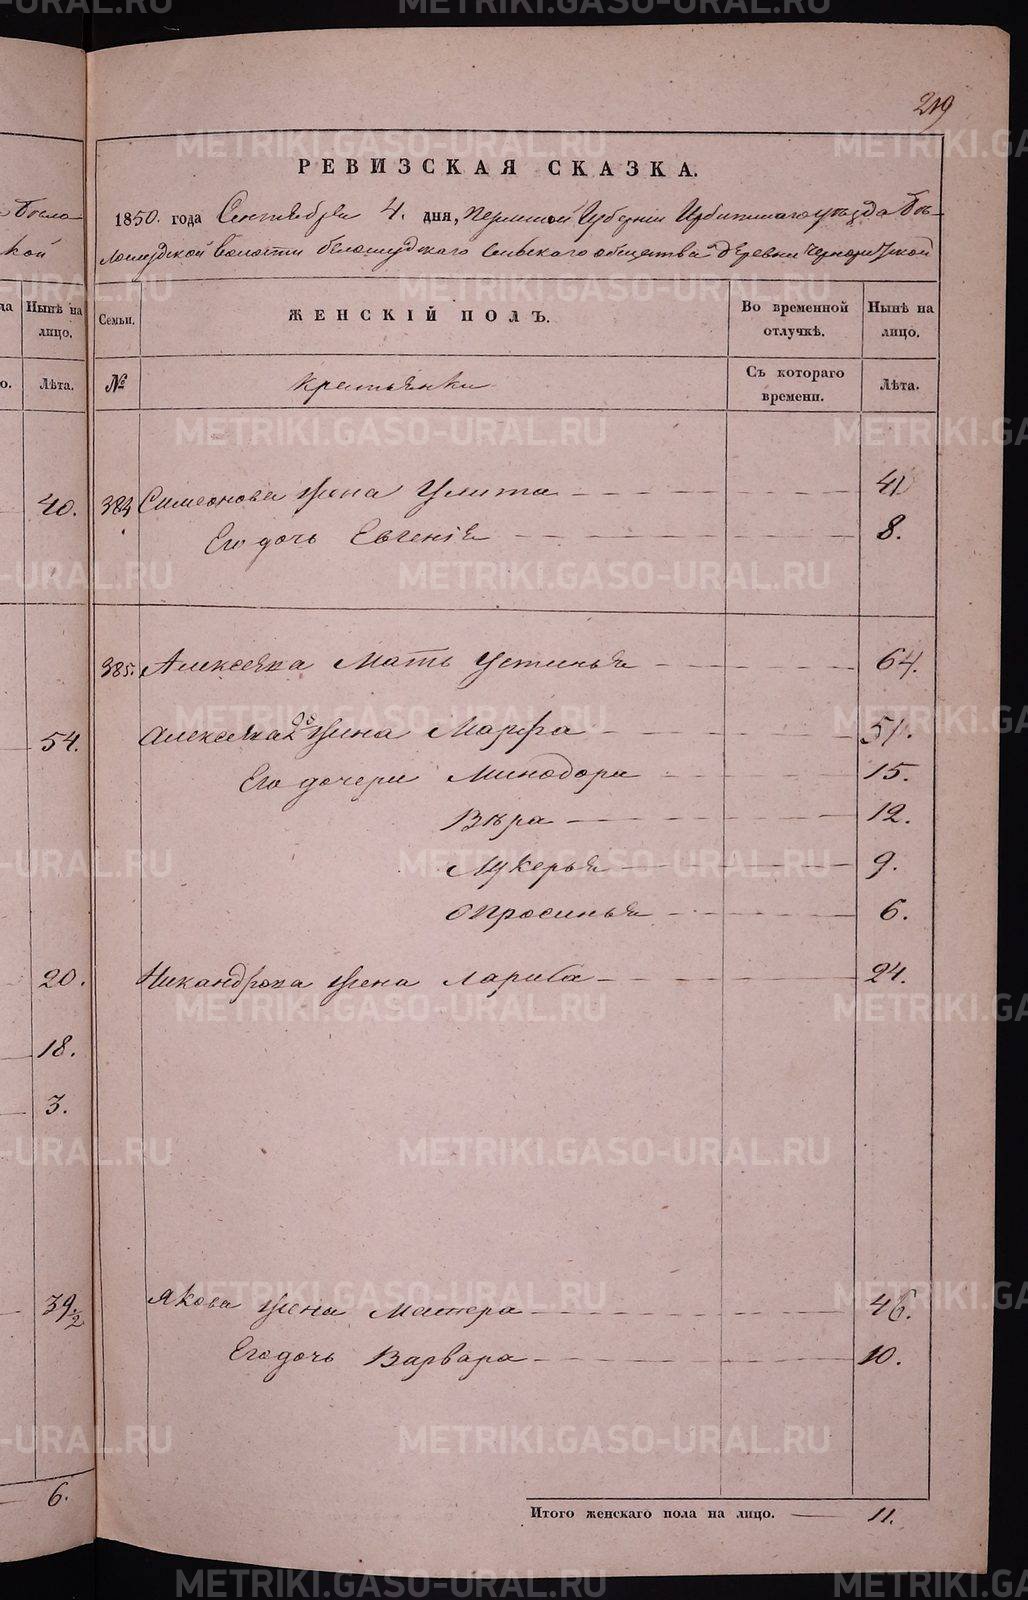 219
РЕВИЗСКАЯ СКАЗКА.
1850. года Сентября 4. дня, Пермской Губернiи Ирбитскаго уѣзда Бѣ-
лослудской волости Белослудскаго Сельскаго общества деревни
Семьи. ЖЕНСКІЙ ПОЛЪ. Во временной отлучкѣ. Нынѣ на лицо.
№ Крестьянки Съ котораго времени. Лѣта.
384 Симеонова жена Улита 41
Его дочь Евгенiя 8.
385. Алексѣя Мать Устинья 64.
Алексѣя 2й жена Марфа 51.
Его дочери Минодора 15.
Вѣра 12.
Лукерья 9.
Опросинья 6.
Никандрова жена Лариса 24.
Якова жена Матера 46.
Его дочь Варвара 10.
Итого женскаго пола на лицо. 11.
Нынѣ на лицо.
Лѣта.
40.
54.
20.
18.
3.
39½
6.
METRIKI.GASO-URAL.RU